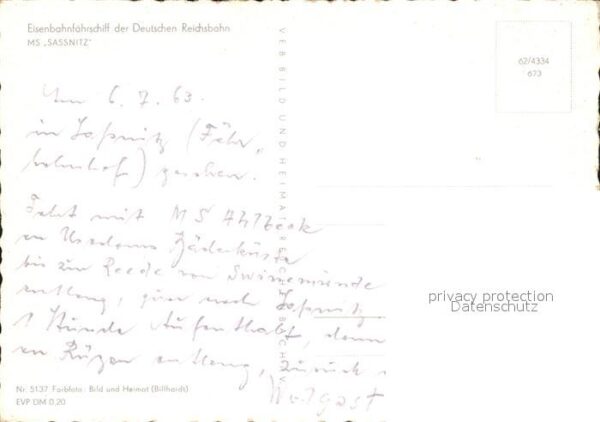 Eisenbahnfährschiff der Deutschen Reichsbahn
MS „SASSNITZ"
VEB BILD UND HEIMAT REICHENBACH V
62/4334
673
Am 6.7.63.
in Saßnitz (Fähr-
bahnhof) gesehen.
Fahrt mit MS Ahlbeck
an Usedoms Bäderküste
bis zur Reede von Swinemünde
entlang, quer nach Saßnitz
1 Stunde Aufenthalt, dann
an Rügen entlang, zurück
Wolgast
privacy protection
Datenschutz
Nr. 5137 Farbfoto: Bild und Heimat (Billhardt)
EVP DM 0,20